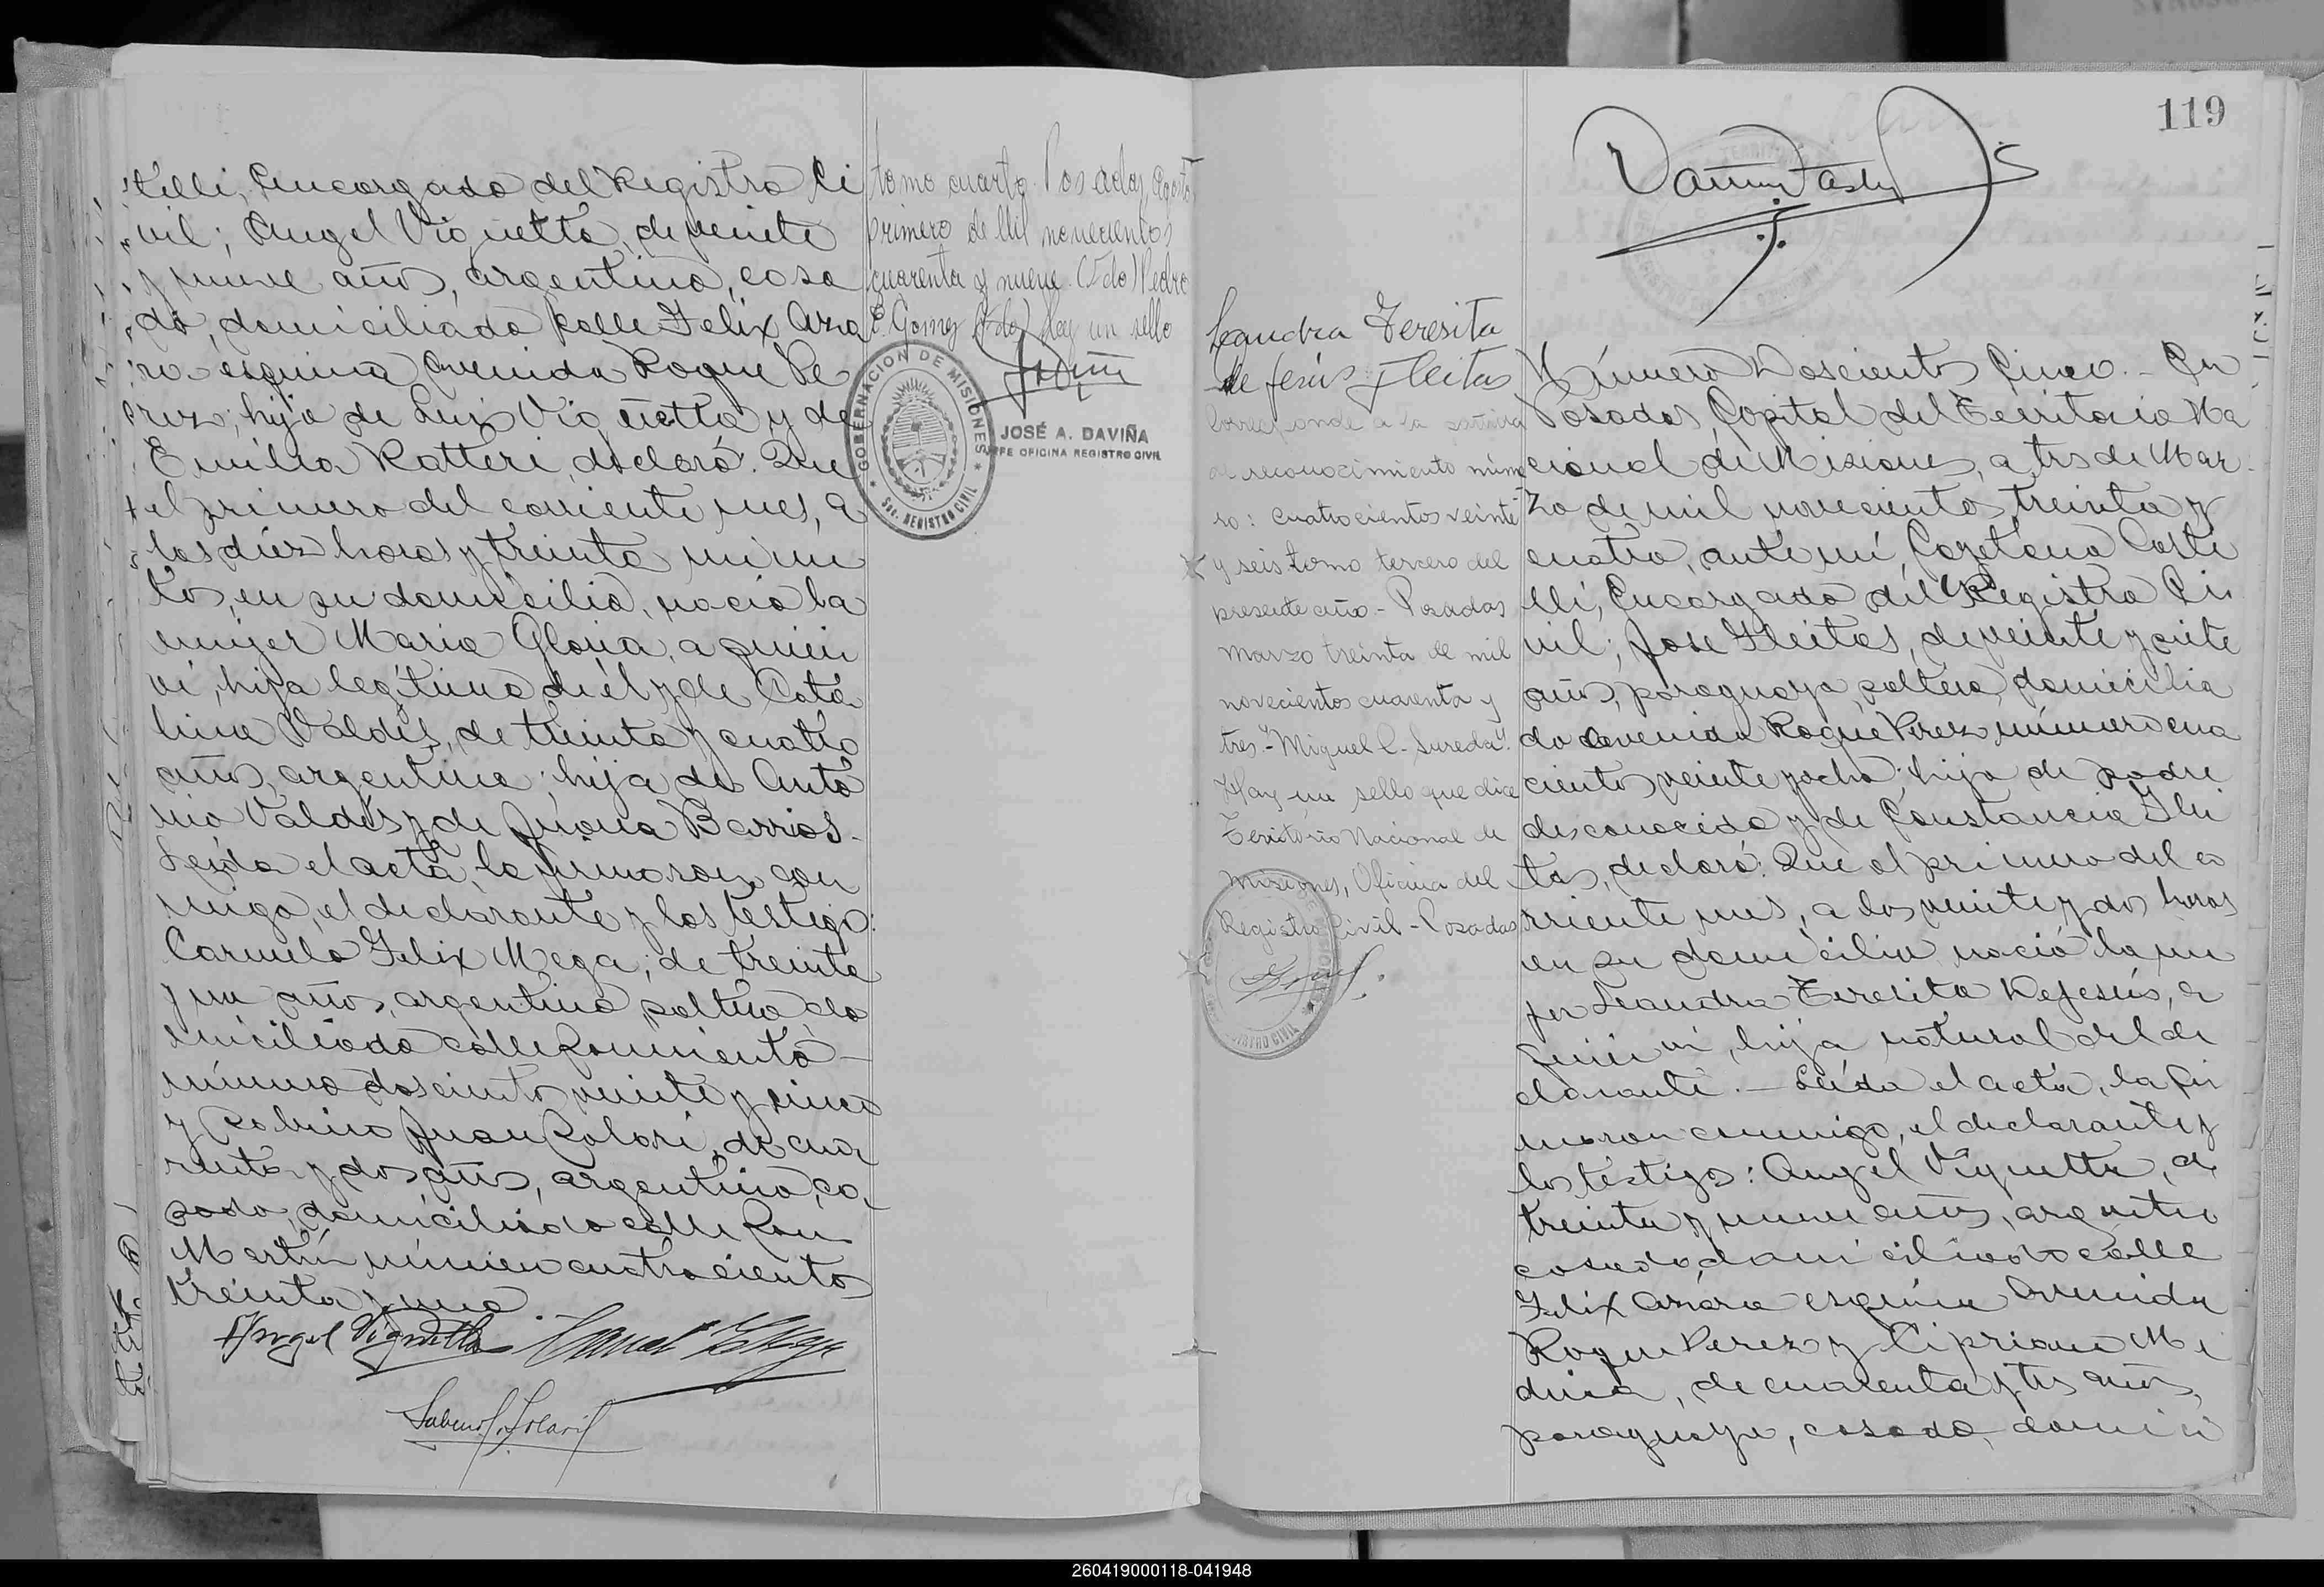 telli, Encargado del Registro Ci
vil; Angel Vignetta, de veinte
y nueve años, argentino, casa
do, domiciliado calle Felix Aza
ra esquina Avenida Roque Pe
rez, hijo de Luis Vignetta y de
Emilia Ratteri, declaró: Que
el primero del corriente mes, a
las diez horas y treinta minu
tos, en su domicilio, nació la
mujer Maria Gloria, a quien
vi, hija legítima de él y de Cata
lina Valdés, de treinta y cuatro
años, argentina; hija de Anto
nio Valdés y de Juana Barrios.
Leída el acta, la firmaron con
migo, el declarante y los testigos:
Carmelo Felix Mega, de treinta
y un años, argentino, soltero do
miciliado calle Sarmiento
número doscientos veinte y cinco
y Sabino Juan Solari, de cua
renta y dos años, argentino, ca
sado, domiciliado calle San
Martin número cuatrocientos
treinta y uno
Angel Vignetta
tomo cuarto. Posadas, Agosto
primero de Mil novecientos
cuarenta y nueve. (Fdo) Pedro
E. Gomez (Fdo) Hay un sello
GOBERNACION DE MISIONES
Sec. REGISTRO CIVIL
JOSÉ A. DAVIÑA
JEFE OFICINA REGISTRO CIVIL
119
Leandra Teresita
de Jesús Fleitas
Corresponde a la
al reconocimiento núme
ro: cuatrocientos veinte
y seis tomo tercero del
presente año - Posadas
marzo treinta de mil
novecientos cuarenta y
tres.- "Miguel C. Sureda".
Hay un sello que dice
Territorio Nacional de
Misiones, Oficina del
Registro Civil - Posadas
Número Doscientos Cinco. - En
Posadas, Capital del Territorio Na
cional de Misiones, a tres de Mar
zo de mil novecientos treinta y
cuatro, ante mí, Cayetano Caste
lli, Encargado del Registro Ci
vil; Jose Fleitas, de veinte y siete
años, paraguayo, soltero, domicilia
do Avenida Roque Perez número cua
cientos veinte y ocho; hijo de padre
desconocido y de Constancia Flei
tas, declaró: Que el primero del co
rriente mes, a las veinte y dos horas
en su domicilio nació la mu
jer Leandra Teresita Dejesús, a
quien vi, hija natural del de
clarante. - Leída el acta, la fir
maron conmigo, el declarante y
los testigos: Angel Vignetta, de
treinta y nueve años, argentino
casado, domiciliado calle
Felix Azara esquina Avenida
Roque Perez y Cipriano Me
dina, de cuarenta y tres años,
paraguayo, casado, domici
260419000118-041948